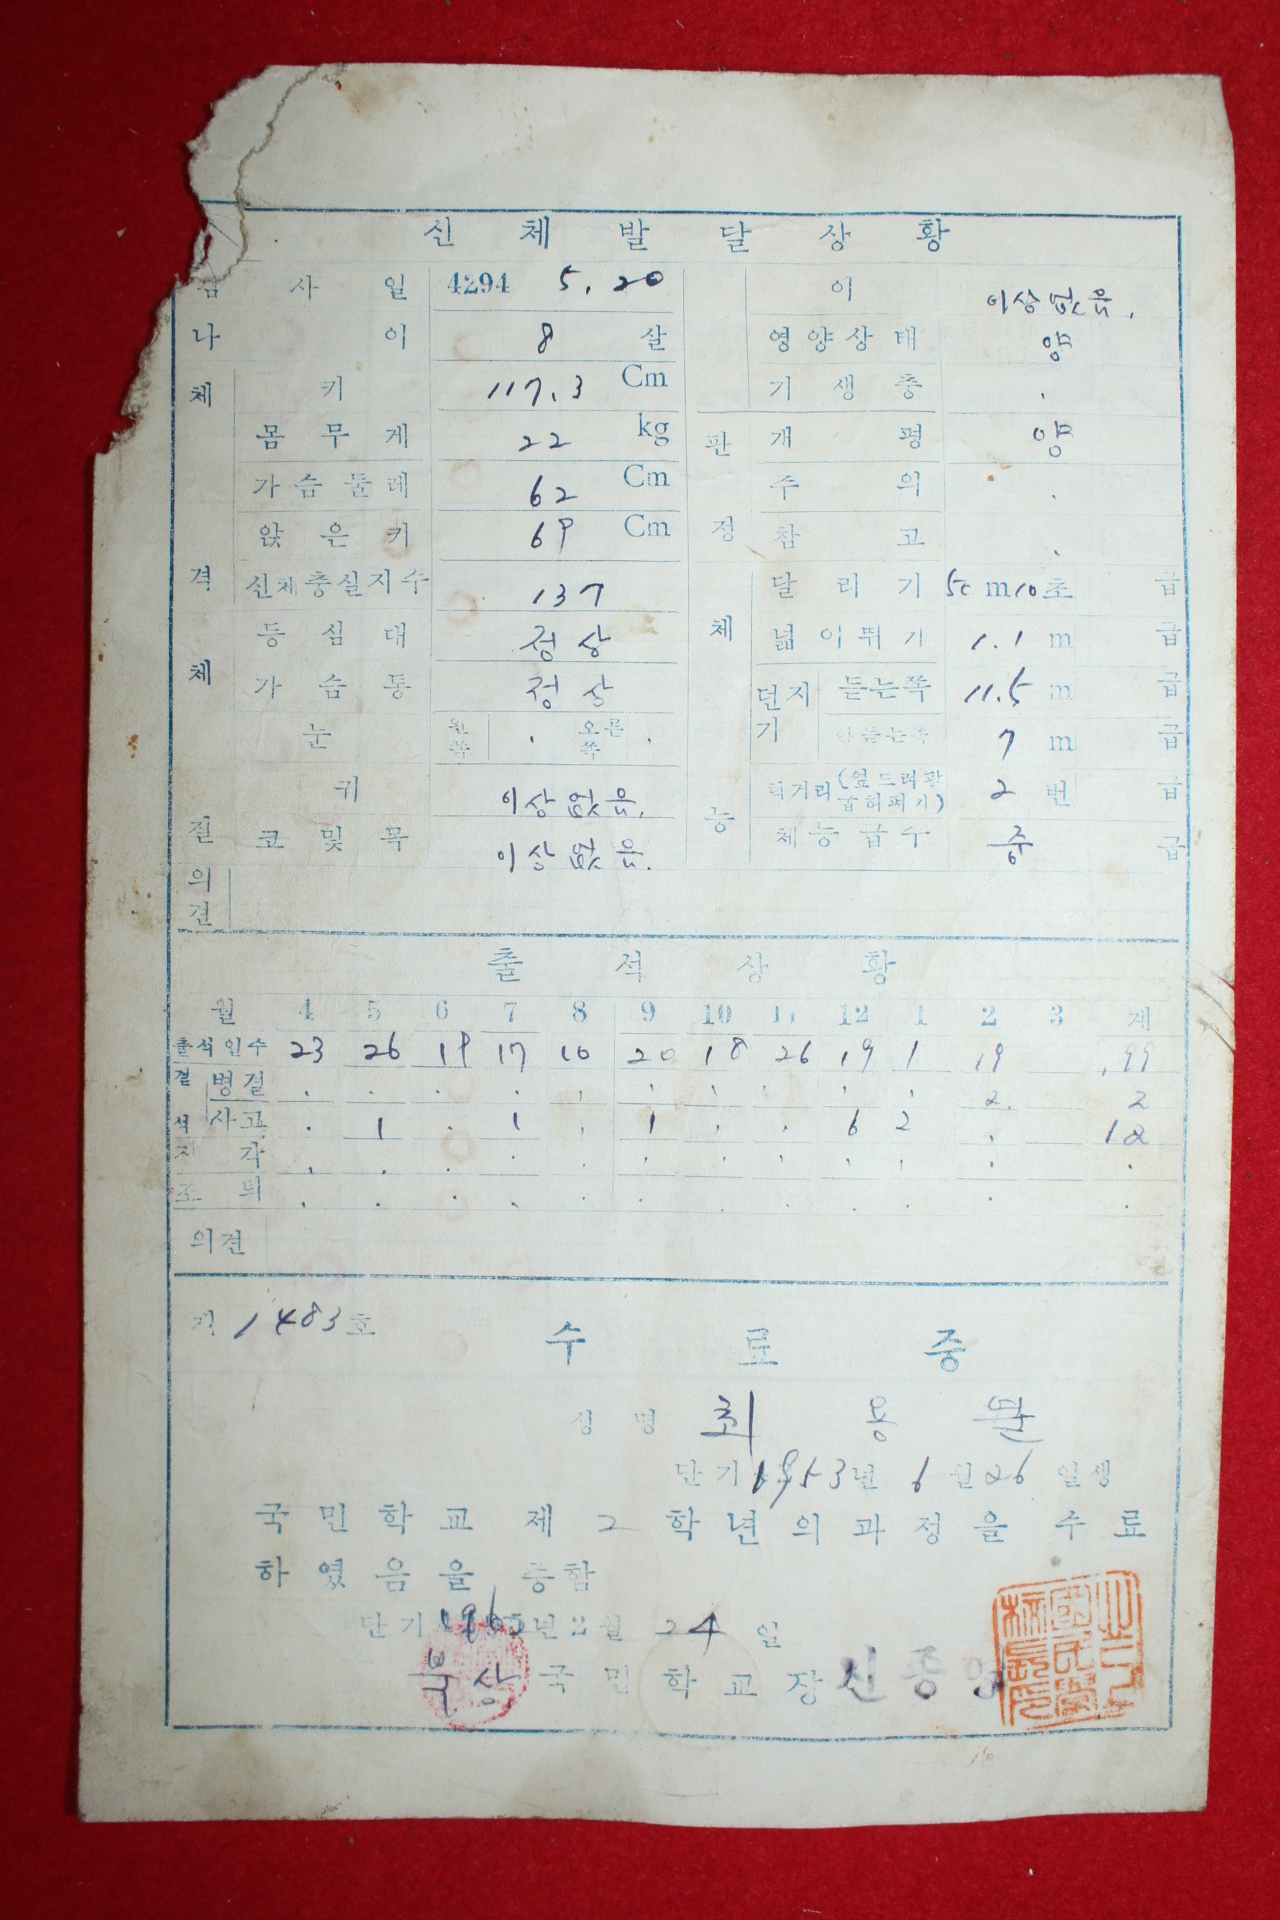 신체발달상황
검사일 4294 5. 20
나이 8 살
체격 키 117.3 Cm
몸무게 22 kg
가슴둘레 62 Cm
앉은키 69 Cm
신체충실지수 137
체질 등심대 정상
가슴통 정상
눈 왼쪽 . 오른쪽 .
귀 이상없음.
코및목 이상없음.
의견
이 이상없음.
영양상태 양
기생충 .
판정 개평 양
주의 .
참고 .
체능 달리기 50 m 10 초 급
넓이뛰기 1.1 m 급
던지기 듣는쪽 11.5 m 급
안듣는쪽 7 m 급
턱거리 2 번 급
체능급수 중 급
출석상황
월 4 5 6 7 8 9 10 11 12 1 2 3 계
출석일수 23 26 19 17 10 20 18 26 19 1 19 199
결석 병결 . . . . . . . . . . 2. 2
사고 . 1 . 1 . 1 . . 6 2 . 12
지각 . . . . . . . . . . . .
조퇴 . . . . . . . . . . . .
의견
제 1483 호
수료증
성명 최용
단기 1953년 6월 26일생
국민학교 제 2 학년의 과정을 수료
하였음을 증함
단기 년 2월 24 일
북상 국민학교장 신종영